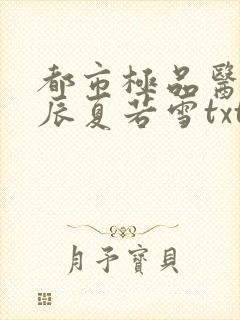 都市極品醫
辰夏若雪txt
月予寶貝